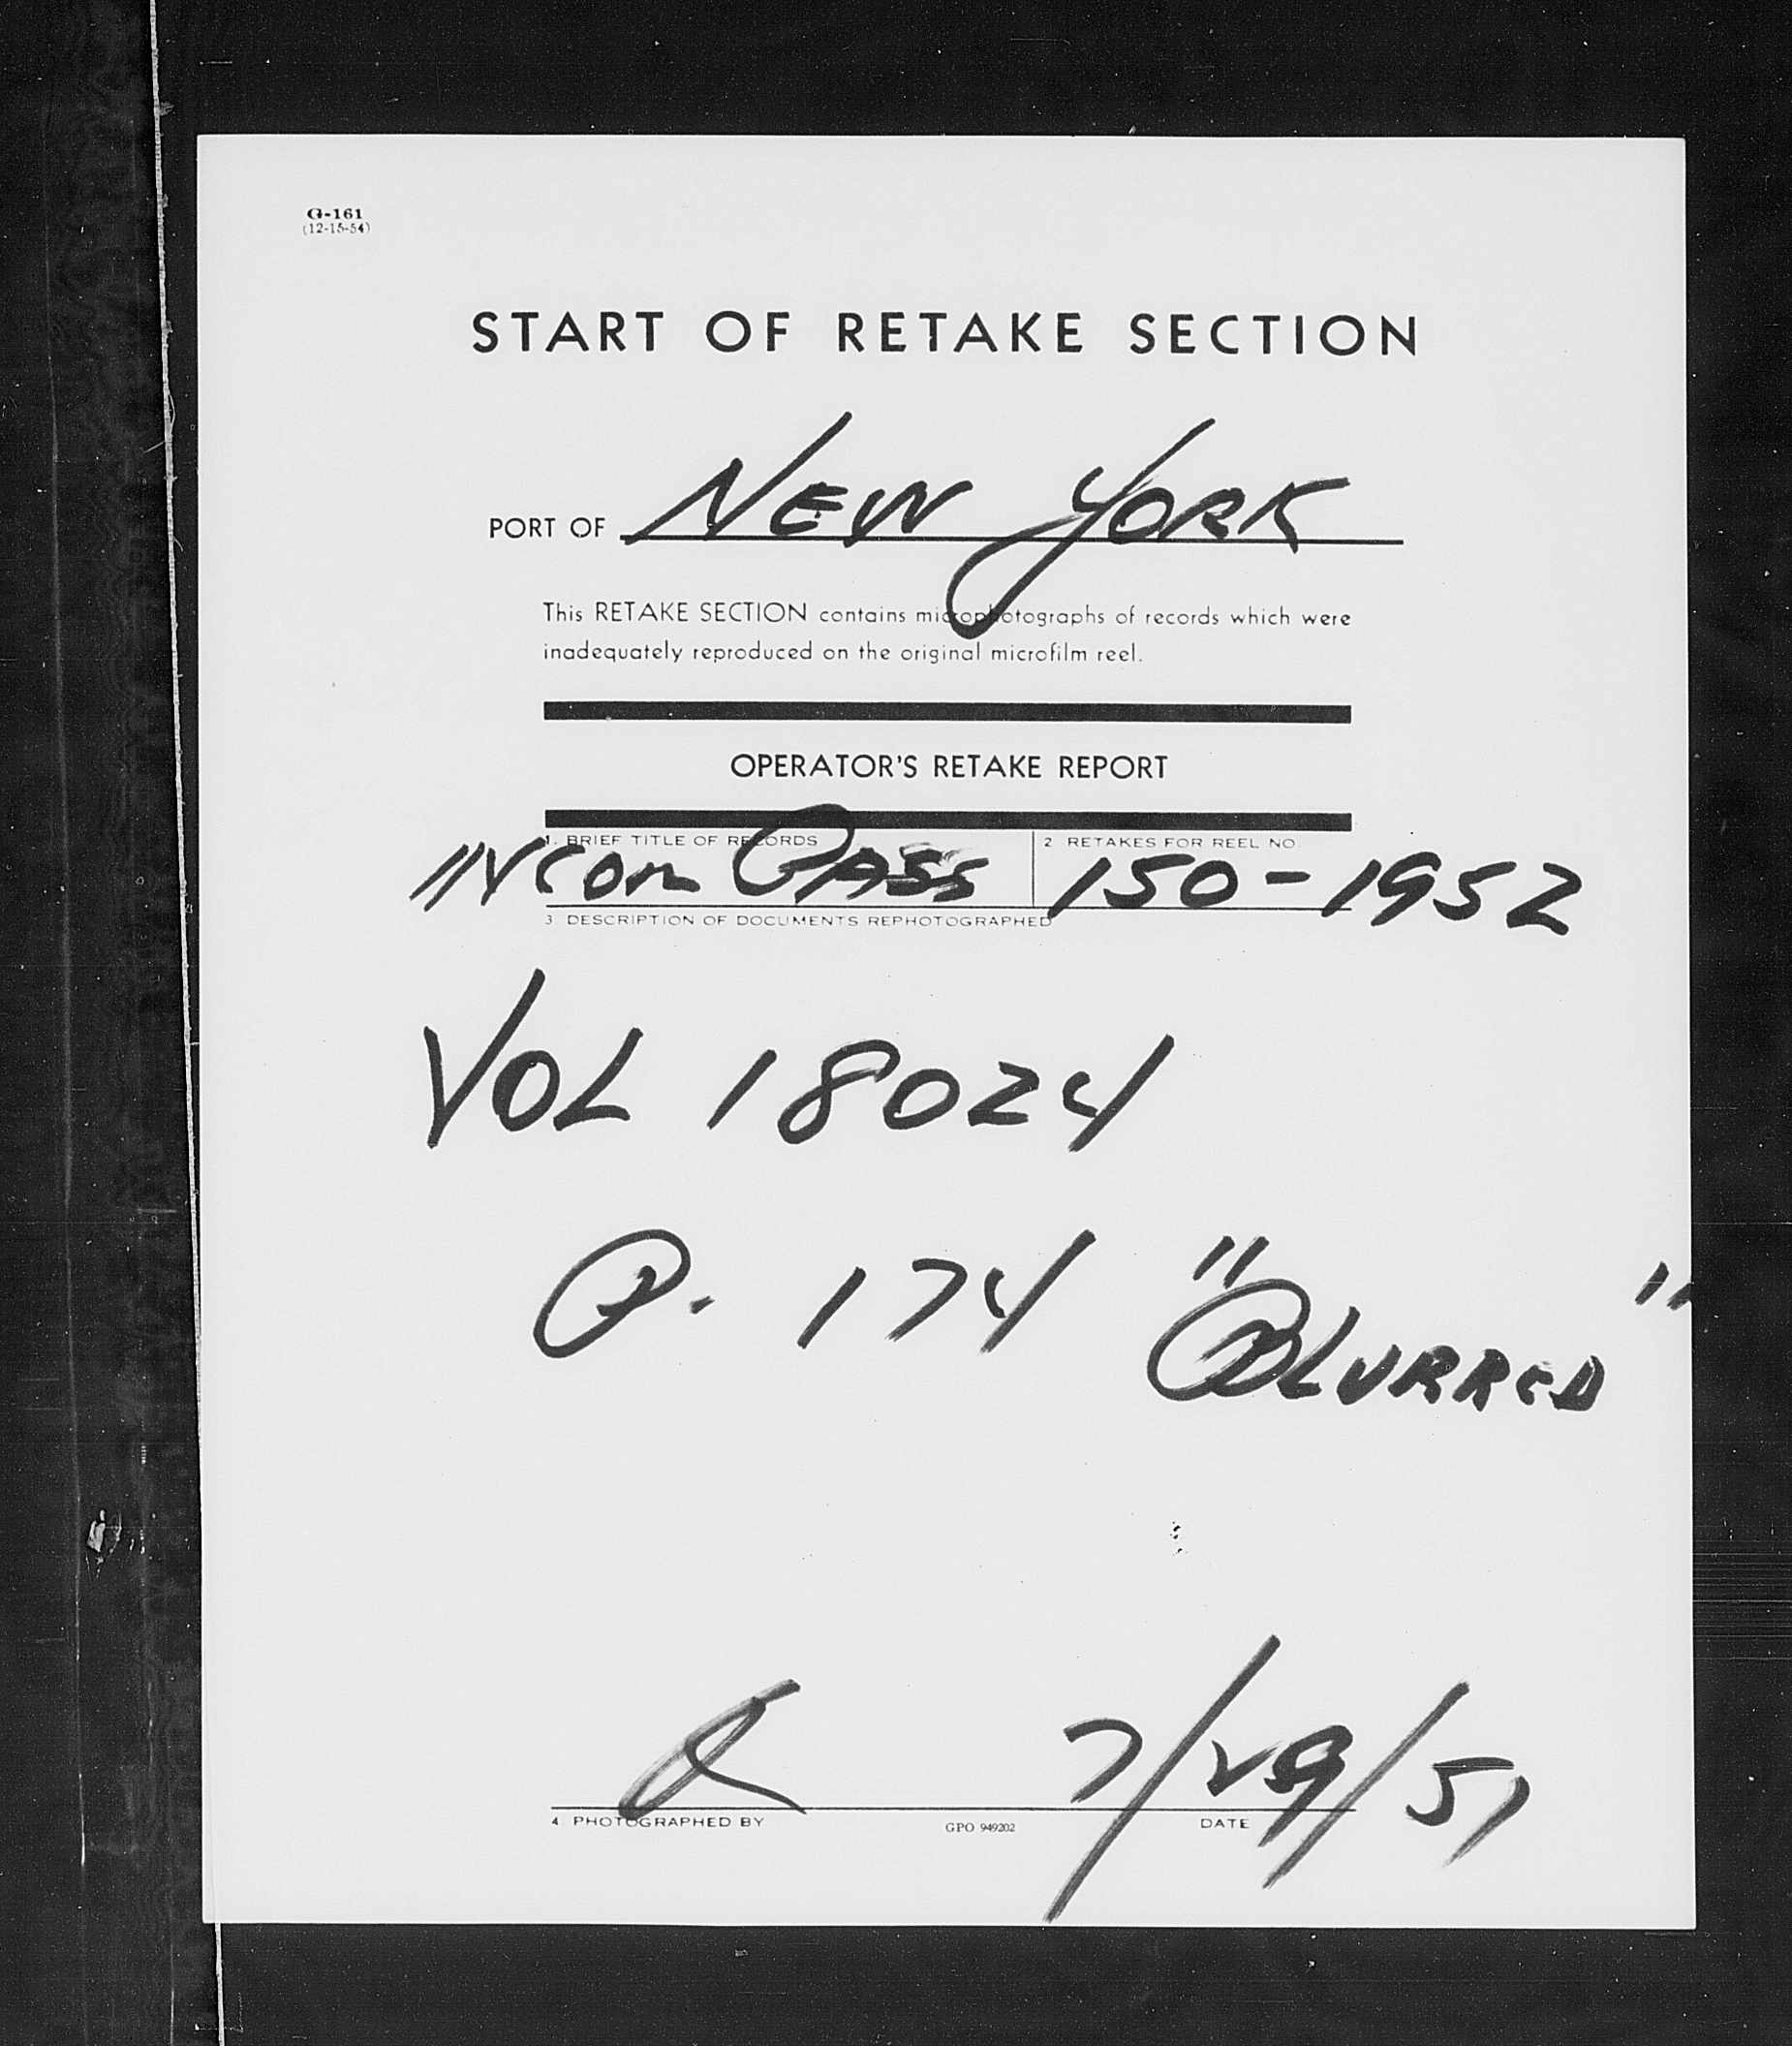 G-161
(12-15-54)
START OF RETAKE SECTION
PORT OF NEW YORK
This RETAKE SECTION contains microphotographs of records which were
inadequately reproduced on the original microfilm reel.
OPERATOR'S RETAKE REPORT
1. BRIEF TITLE OF RECORDS 2 RETAKES FOR REEL NO.
INCOM PASS 150-1952
3 DESCRIPTION OF DOCUMENTS REPHOTOGRAPHED
VOL 18024
P. 174 "BLURRED"
7/29/57
4. PHOTOGRAPHED BY GPO 949202 DATE